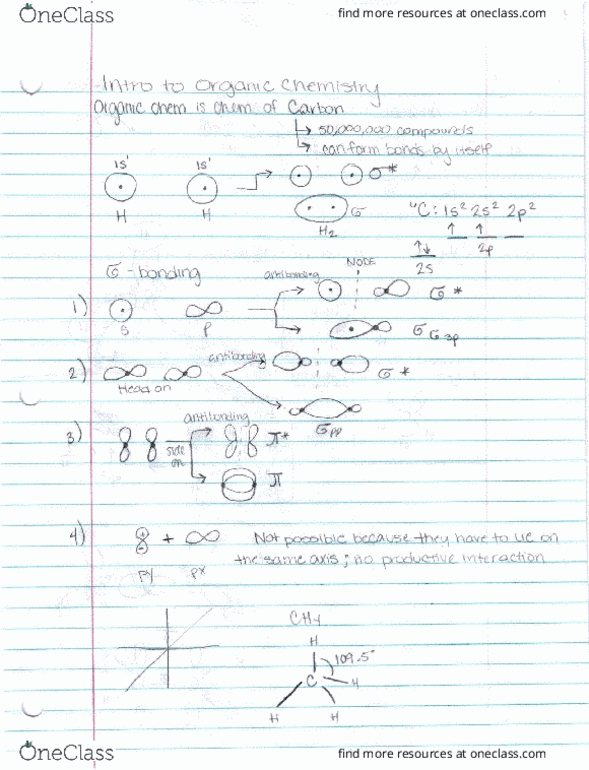 OneClass
find more resources at oneclass.com
Intro to Organic Chemistry
Organic chem is chem of Carbon
50,000,000 compounds
can form bonds by itself
1s¹ 1s¹
σ*
H H
σ
H₂
C: 1s² 2s² 2p²
2p
2s
σ-bonding
antibonding
NODE
σ*
1)
S P
σ
2)
Head on
antibonding
σ*
σpp
antibonding
3)
side on
π*
π
4)
+
Not possible because they have to lie on
the same axis; no productive interaction
py px
CH4
H
109.5°
C
H
H H
OneClass
find more resources at oneclass.com